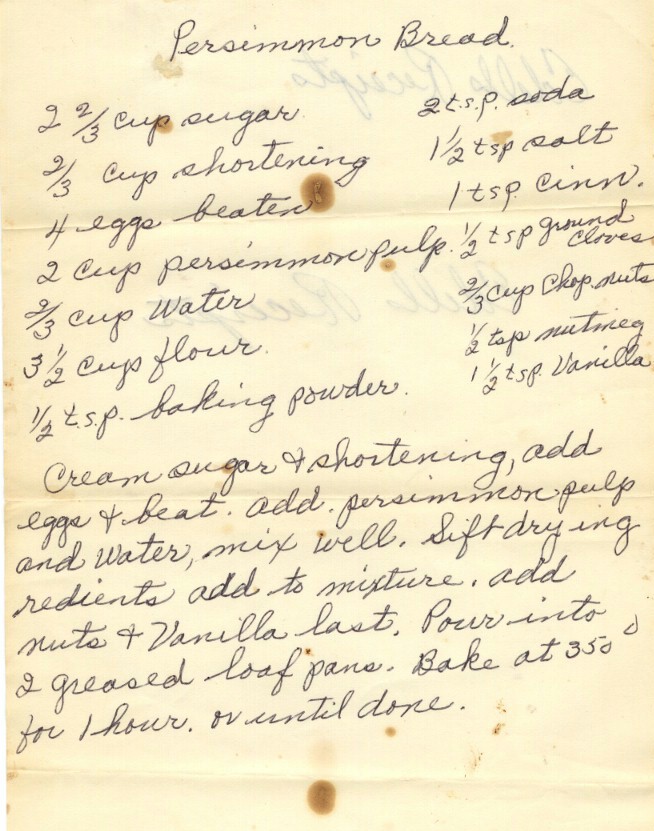 Persimmon Bread.
2 2/3 cup sugar
2/3 cup shortening
4 eggs beaten
2 cup persimmon pulp.
2/3 cup Water
3 1/2 cup flour.
1/2 t.s.p. baking powder.
2 t.s.p. soda
1 1/2 tsp salt
1 tsp. Cinn.
1/2 tsp ground
Cloves
2/3 cup Chop. nuts
1/2 tsp nutmeg
1 1/2 tsp. Vanilla
Cream sugar & shortening, add
eggs & beat. add. persimmon pulp
and Water, mix well. Sift dry ing
redients add to mixture. add
nuts & Vanilla last. Pour into
2 greased loaf pans. Bake at 350°
for 1 hour. or until done.